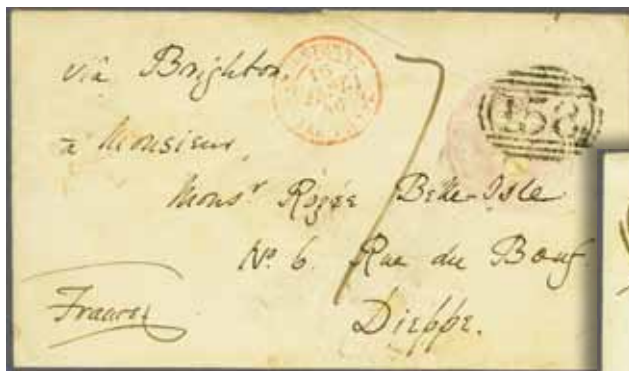 via Brighton.
à Monsieur,
Monsr Rogée Belle-Isle
No. 6. Rue du Bœuf
Dieppe.
France
7